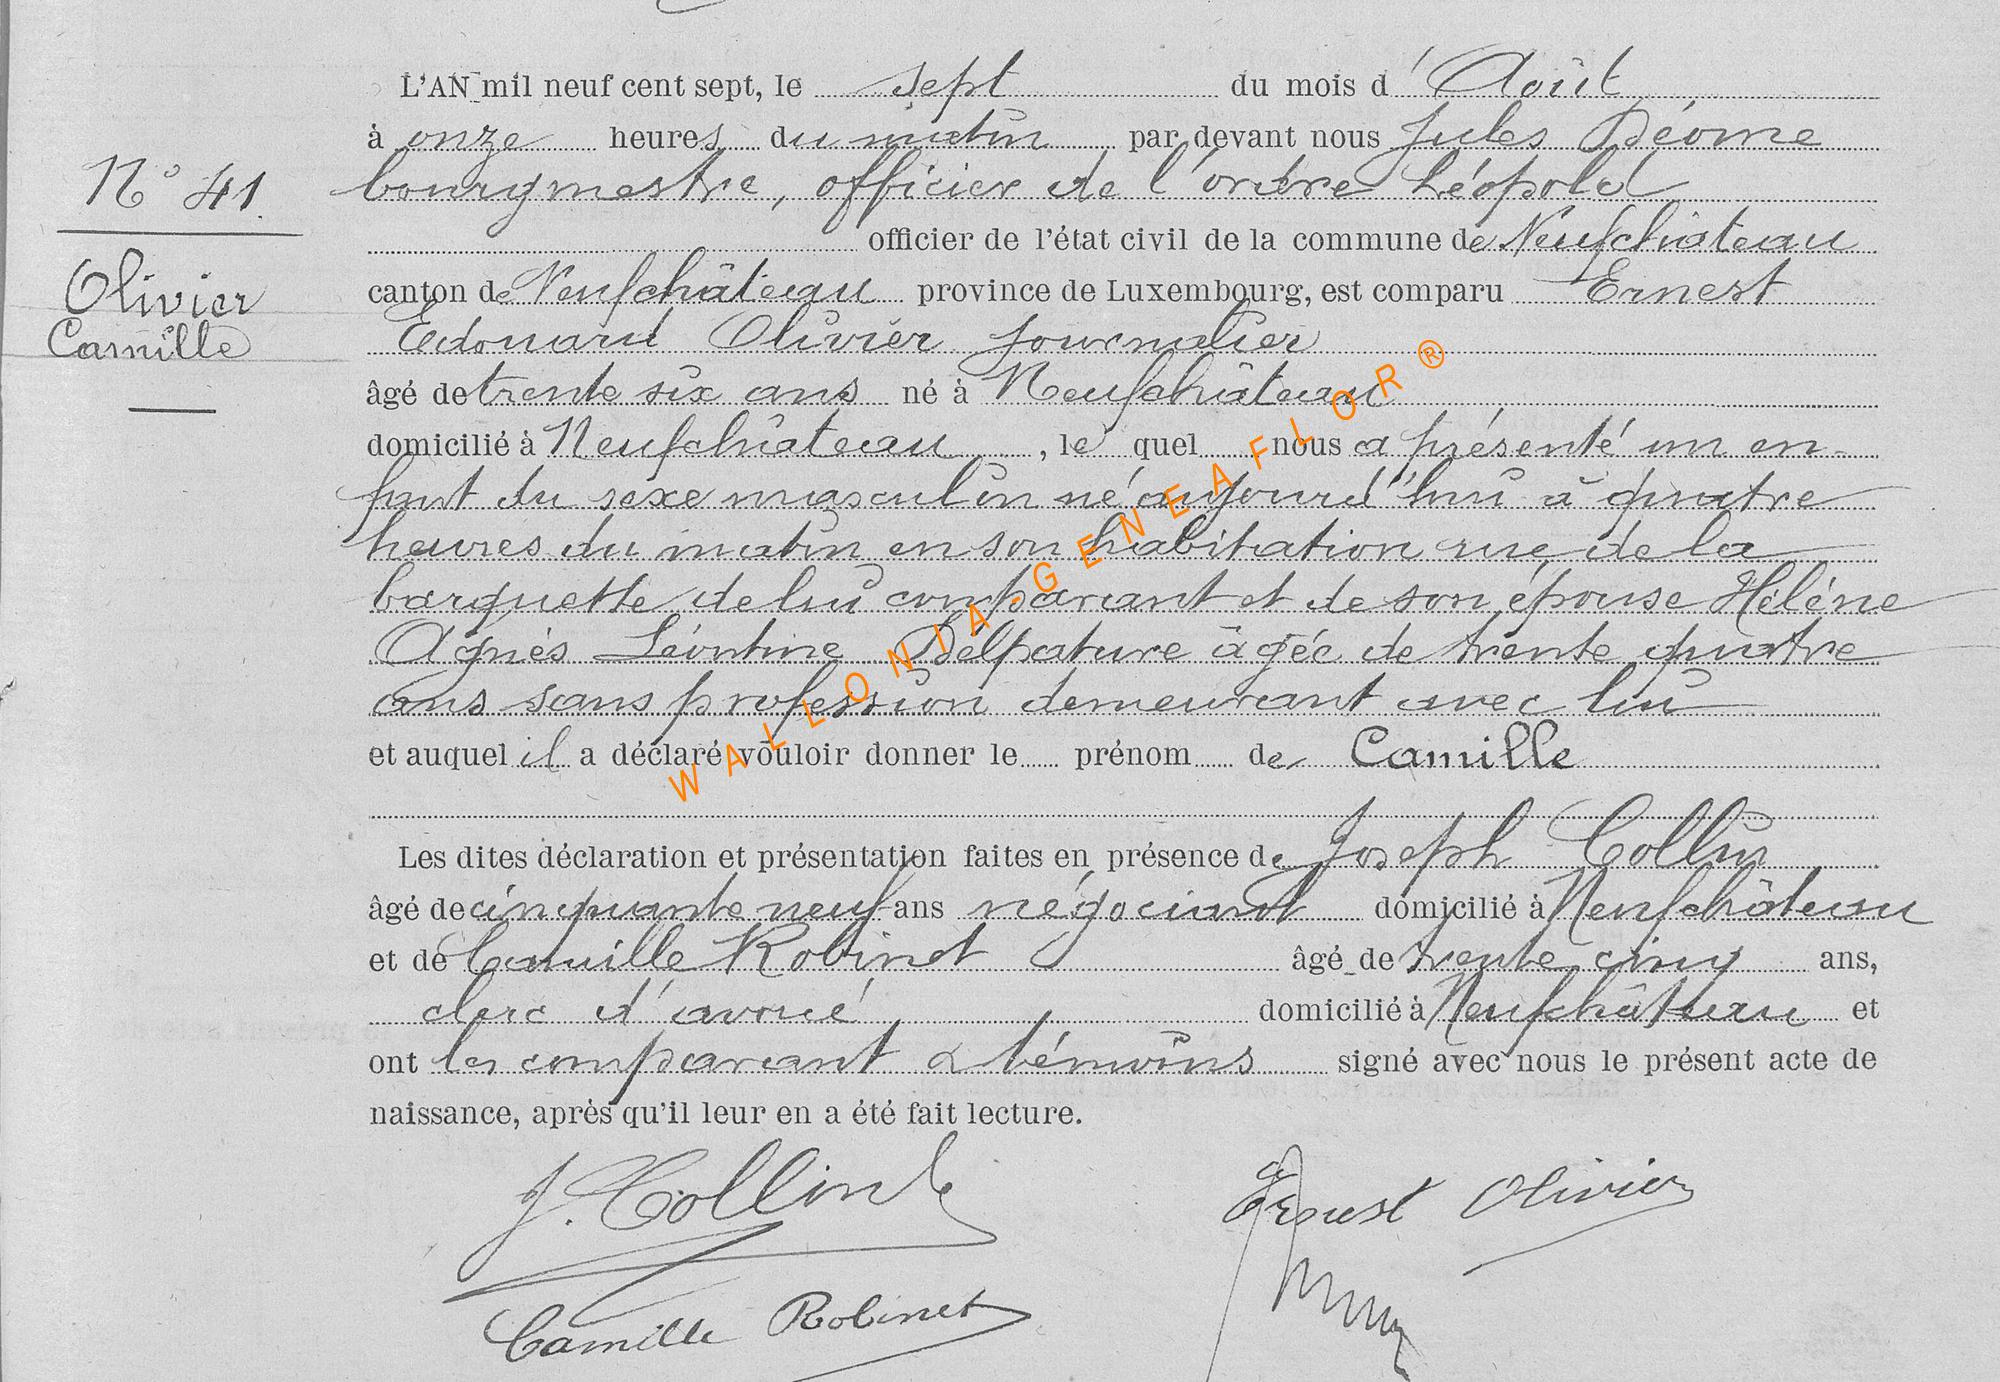 L'AN mil neuf cent sept, le sept du mois d'Août
à onze heures du matin par devant nous Jules Déome
N° 41
bourgmestre, officier de l'ordre Léopold
officier de l'état civil de la commune de Neufchâteau
Olivier
Camille
canton de Neufchâteau province de Luxembourg, est comparu Ernest
Edouard Olivier journalier
âgé de trente six ans né à Neufchâteau
domicilié à Neufchâteau, le quel nous a présenté un en-
fant du sexe masculin né aujourd'hui à quatre
heures du matin en son habitation rue de la
barquette de lui comparant et de son épouse Hélène
Agnès Léontine Délpature âgée de trente quatre
ans sans profession demeurant avec lui
et auquel il a déclaré vouloir donner le prénom de Camille
Les dites déclaration et présentation faites en présence de Joseph Collin
âgé de cinquante neuf ans négociant domicilié à Neufchâteau
et de Camille Robinet âgé de trente cinq ans,
clerc d'avoué domicilié à Neufchâteau et
ont les comparant & témoins signé avec nous le présent acte de
naissance, après qu'il leur en a été fait lecture.
J. Collin
Ernest Olivier
Camille Robinet
WALLONIA-GENEAFLOR®